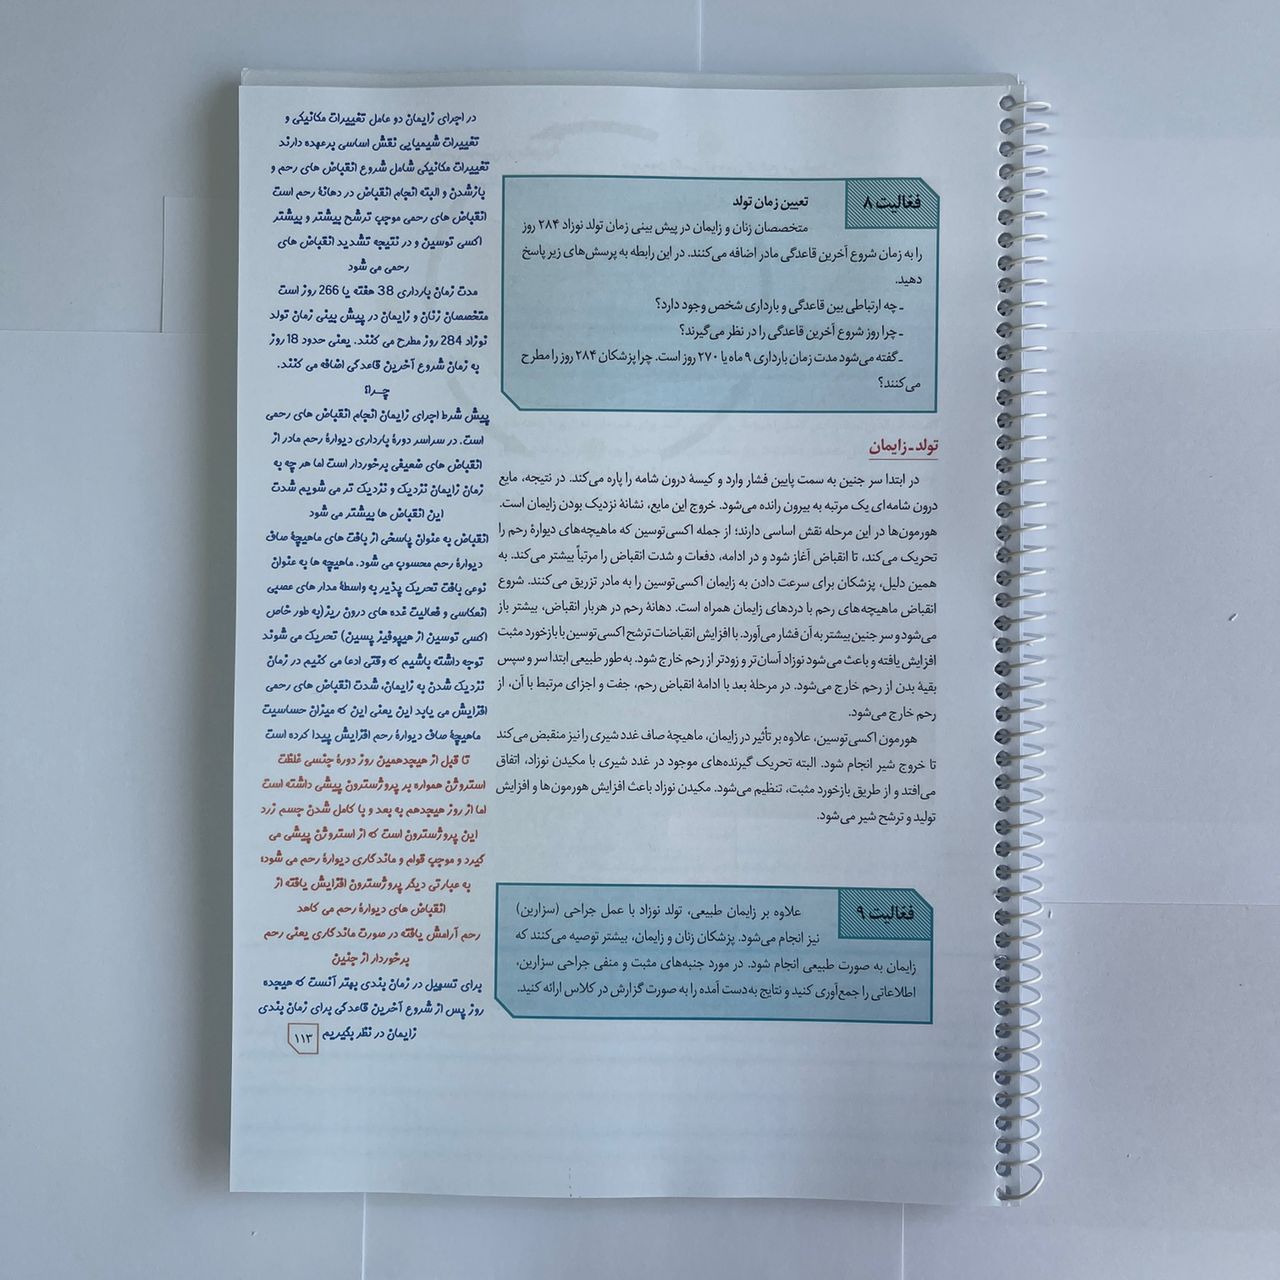 فعالیت ۸
تعیین زمان تولد
متخصصان زنان و زایمان در پیش بینی زمان تولد نوزاد ۲۸۴ روز
را به زمان شروع آخرین قاعدگی مادر اضافه می‌کنند. در این رابطه به پرسش‌های زیر پاسخ
دهید.
ـ چه ارتباطی بین قاعدگی و بارداری شخص وجود دارد؟
ـ چرا روز شروع آخرین قاعدگی را در نظر می‌گیرند؟
ـ گفته می‌شود مدت زمان بارداری ۹ ماه یا ۲۷۰ روز است. چرا پزشکان ۲۸۴ روز را مطرح
می‌کنند؟
تولد ـ زایمان
در ابتدا سر جنین به سمت پایین فشار وارد و کیسهٔ درون شامه را پاره می‌کند. در نتیجه، مایع
درون شامه‌ای یک مرتبه به بیرون رانده می‌شود. خروج این مایع، نشانهٔ نزدیک بودن زایمان است.
هورمون‌ها در این مرحله نقش اساسی دارند؛ از جمله اکسی‌توسین که ماهیچه‌های دیوارهٔ رحم را
تحریک می‌کند، تا انقباض آغاز شود و در ادامه، دفعات و شدت انقباض را مرتباً بیشتر می‌کند. به
همین دلیل، پزشکان برای سرعت دادن به زایمان اکسی‌توسین را به مادر تزریق می‌کنند. شروع
انقباض ماهیچه‌های رحم با دردهای زایمان همراه است. دهانهٔ رحم در هربار انقباض، بیشتر باز
می‌شود و سر جنین بیشتر به آن فشار می‌آورد. با افزایش انقباضات ترشح اکسی‌توسین با بازخورد مثبت
افزایش یافته و باعث می‌شود نوزاد آسان‌تر و زودتر از رحم خارج شود. به‌طور طبیعی ابتدا سر و سپس
بقیهٔ بدن از رحم خارج می‌شود. در مرحلهٔ بعد با ادامهٔ انقباض رحم، جفت و اجزای مرتبط با آن، از
رحم خارج می‌شود.
هورمون اکسی‌توسین، علاوه بر تأثیر در زایمان، ماهیچهٔ صاف غدد شیری را نیز منقبض می‌کند
تا خروج شیر انجام شود. البته تحریک گیرنده‌های موجود در غدد شیری با مکیدن نوزاد، اتفاق
می‌افتد و از طریق بازخورد مثبت، تنظیم می‌شود. مکیدن نوزاد باعث افزایش هورمون‌ها و افزایش
تولید و ترشح شیر می‌شود.
فعالیت ۹
علاوه بر زایمان طبیعی، تولد نوزاد با عمل جراحی (سزارین)
نیز انجام می‌شود. پزشکان زنان و زایمان، بیشتر توصیه می‌کنند که
زایمان به صورت طبیعی انجام شود. در مورد جنبه‌های مثبت و منفی جراحی سزارین،
اطلاعاتی را جمع‌آوری کنید و نتایج به‌دست آمده را به صورت گزارش در کلاس ارائه کنید.
در اجرای زایمان دو عامل تغییرات مکانیکی و
تغییرات شیمیایی نقش اساسی برعهده دارند
تغییرات مکانیکی شامل شروع انقباض های رحم و
بازشدن و البته انجام انقباض در دهانهٔ رحم است
انقباض های رحمی موجب ترشح بیشتر و بیشتر
اکسی توسین و در نتیجه تشدید انقباض های
رحمی می شود
مدت زمان بارداری 38 هفته یا 266 روز است
متخصصان زنان و زایمان در پیش بینی زمان تولد
نوزاد 284 روز مطرح می کنند. یعنی حدود 18 روز
به زمان شروع آخرین قاعدگی اضافه می کنند.
چرا؟
پیش شرط اجرای زایمان انجام انقباض های رحمی
است. در سراسر دورهٔ بارداری دیوارهٔ رحم مادر از
انقباض های ضعیفی برخوردار است اما هر چه به
زمان زایمان نزدیک و نزدیک تر می شویم شدت
این انقباض ها بیشتر می شود
انقباض به عنوان پاسخی از بافت های ماهیچهٔ صاف
دیوارهٔ رحم محسوب می شود. ماهیچه ها به عنوان
نوعی بافت تحریک پذیر به واسطهٔ مدار های عصبی
انعکاسی و فعالیت غده های درون ریز(به طور خاص
اکسی توسین از هیپوفیز پسین) تحریک می شوند
توجه داشته باشیم که وقتی ادعا می کنیم در زمان
نزدیک شدن به زایمان، شدت انقباض های رحمی
افزایش می یابد این یعنی این که میزان حساسیت
ماهیچهٔ صاف دیوارهٔ رحم افزایش پیدا کرده است
تا قبل از هیجدهمین روز دورهٔ جنسی غلظت
استروژن همواره بر پروژسترون پیشی داشته است
اما از روز هیجدهم به بعد و با کامل شدن جسم زرد
این پروژسترون است که از استروژن پیشی می
گیرد و موجب قوام و ماندگاری دیوارهٔ رحم می شود؛
به عبارتی دیگر پروژسترون افزایش یافته از
انقباض های دیوارهٔ رحم می کاهد
رحم آرامش یافته در صورت ماندگاری یعنی رحم
برخوردار از جنین
برای تسهیل در زمان بندی بهتر آنست که هیجده
روز پس از شروع آخرین قاعدگی برای زمان بندی
زایمان در نظر بگیریم
۱۱۳